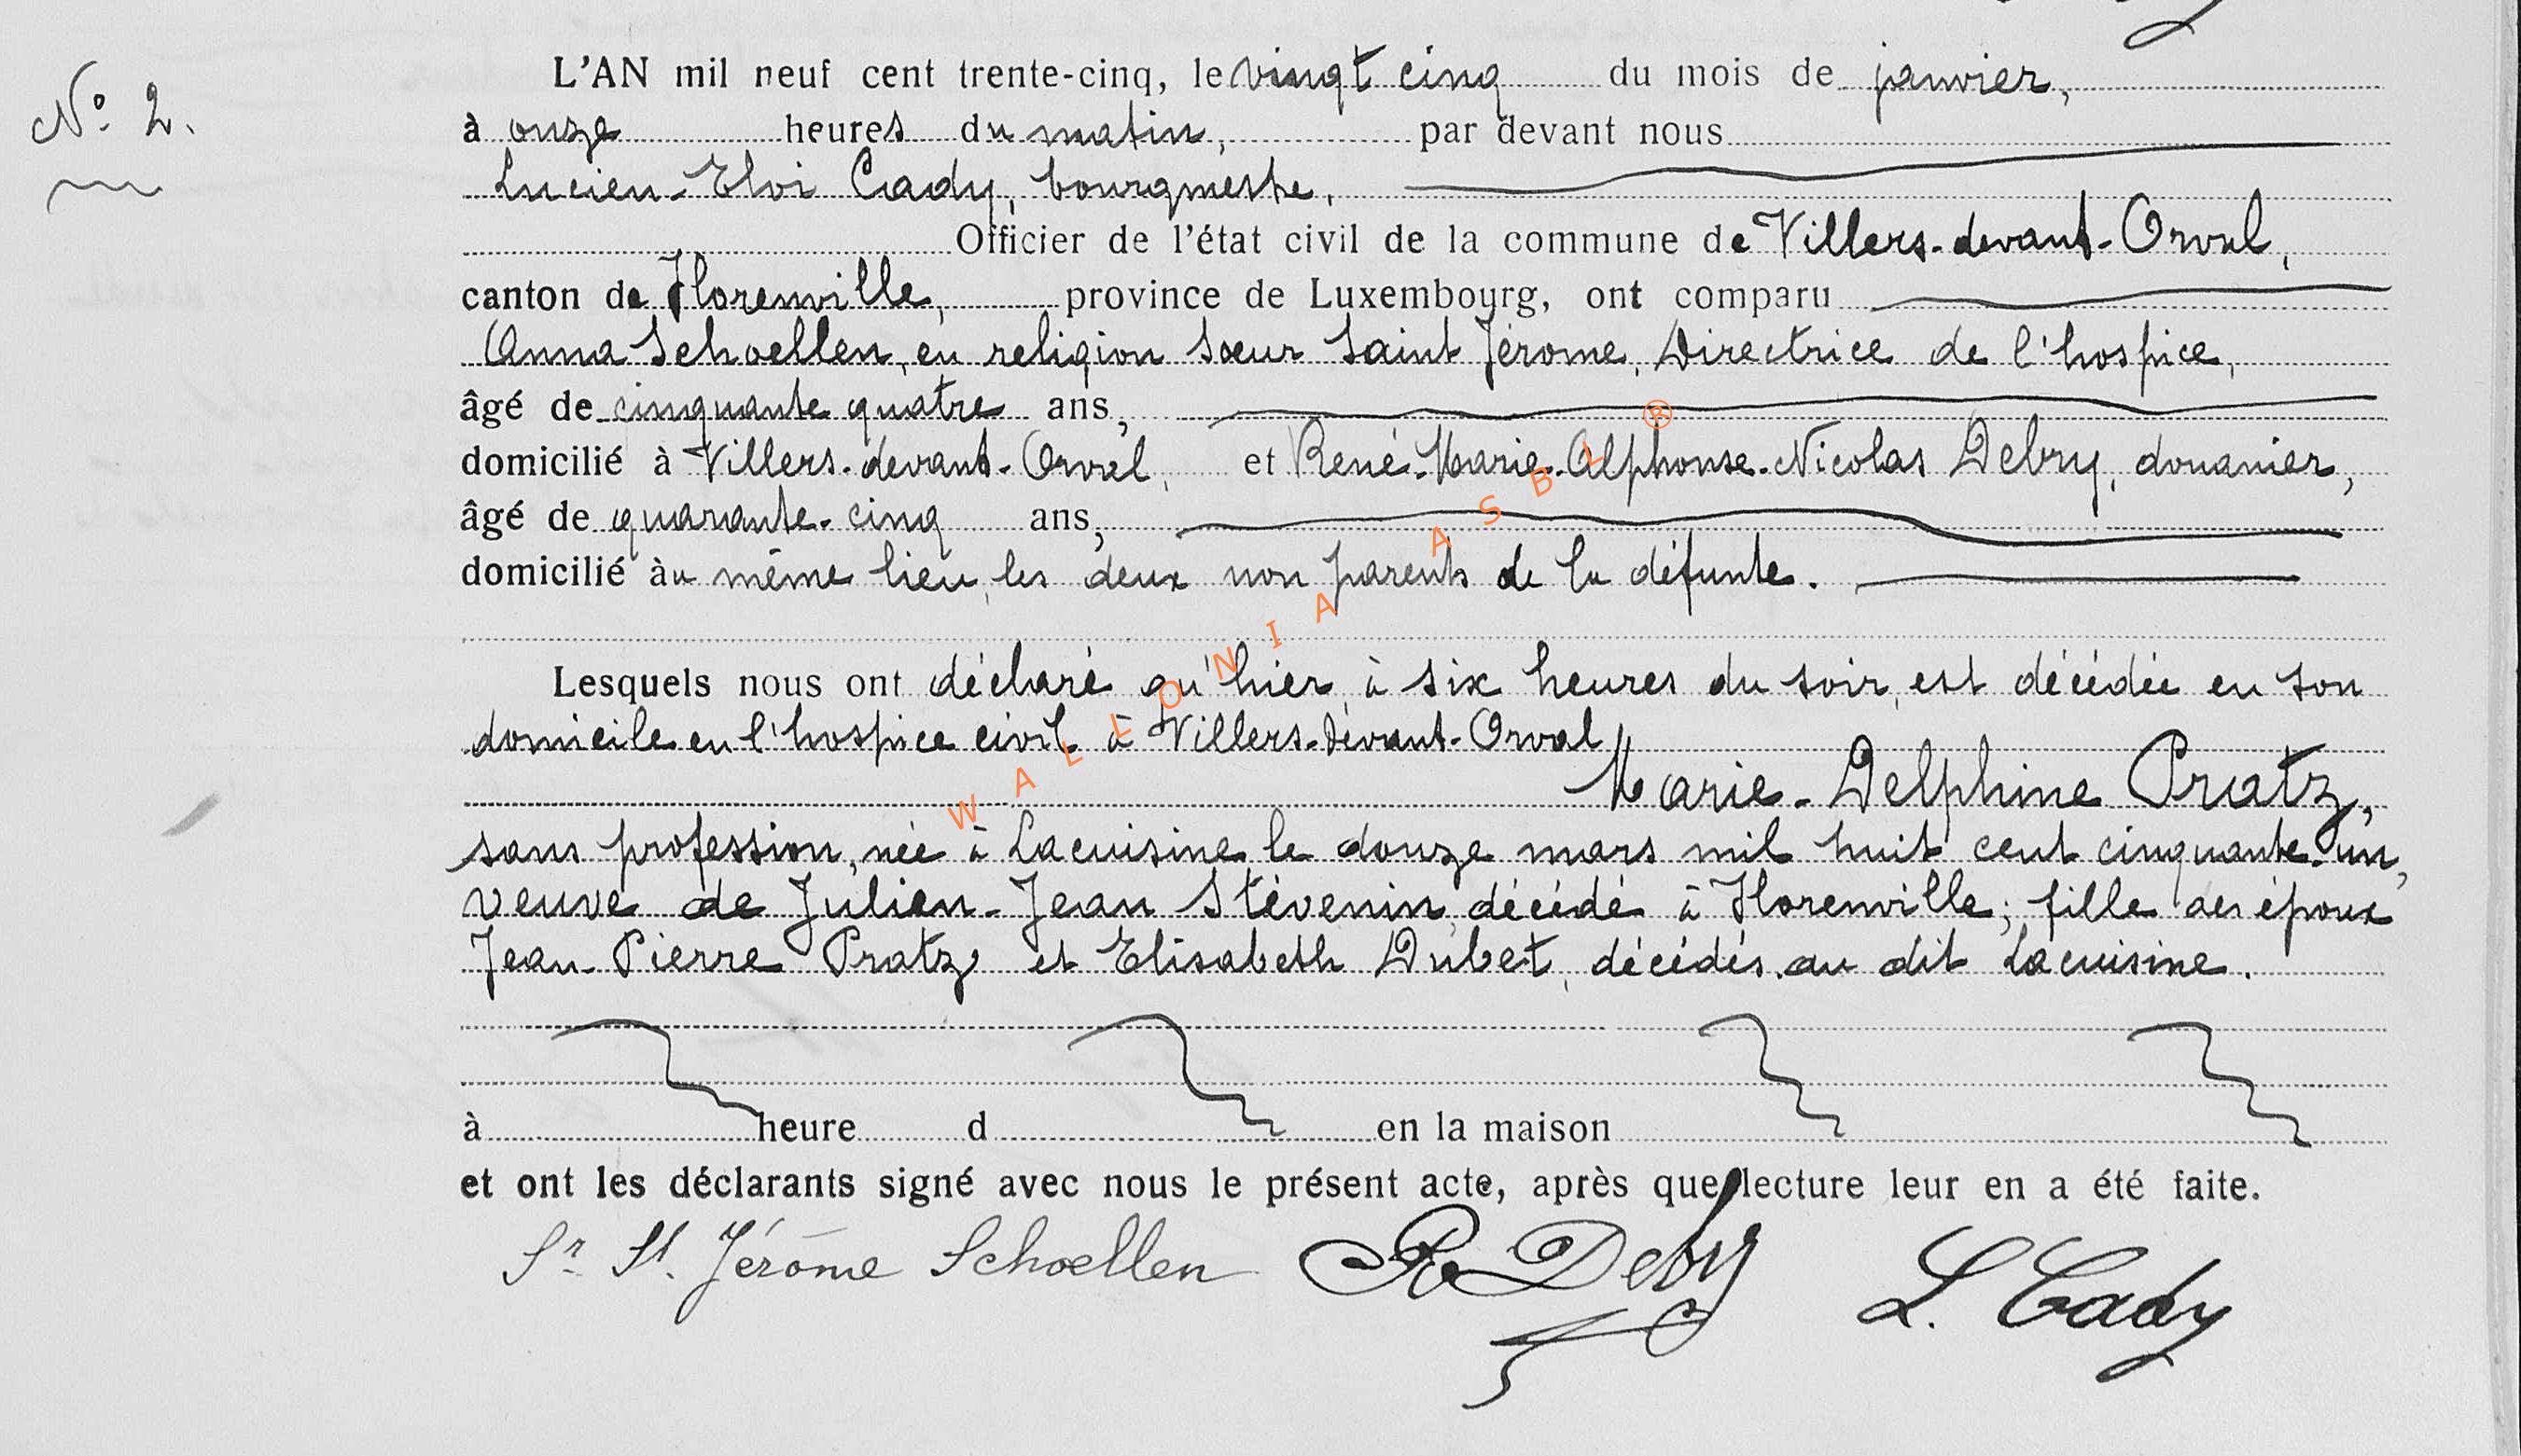 N° 2.
L'AN mil neuf cent trente-cinq, le vingt cinq du mois de janvier,
à onze heures du matin, par devant nous
Lucien-Eloi Cady, bourgmestre,
Officier de l'état civil de la commune de Villers-devant-Orval,
canton de Florenville, province de Luxembourg, ont comparu
Anna Schoellen, en religion Sœur Saint Jérome, Directrice de l'hospice,
âgé de cinquante quatre ans,
domicilié à Villers-devant-Orval, et René-Marie-Alphonse-Nicolas Debry, douanier,
âgé de quarante-cinq ans,
domicilié au même lieu, les deux non parents de la défunte.
Lesquels nous ont déclaré qu'hier, à six heures du soir, est décédée en son
domicile en l'hospice civil à Villers-devant-Orval
Marie-Delphine Pratz,
sans profession, née à Lacuisine le douze mars mil huit cent cinquante-un,
veuve de Julien-Jean Stévenin, décédé à Florenville; fille des époux
Jean-Pierre Pratz et Elisabeth Dubet, décédés au dit Lacuisine.
à heure d en la maison
et ont les déclarants signé avec nous le présent acte, après que lecture leur en a été faite.
Sr St. Jérôme Schoellen R Debry L. Cady
WALLONIA ASBL ®